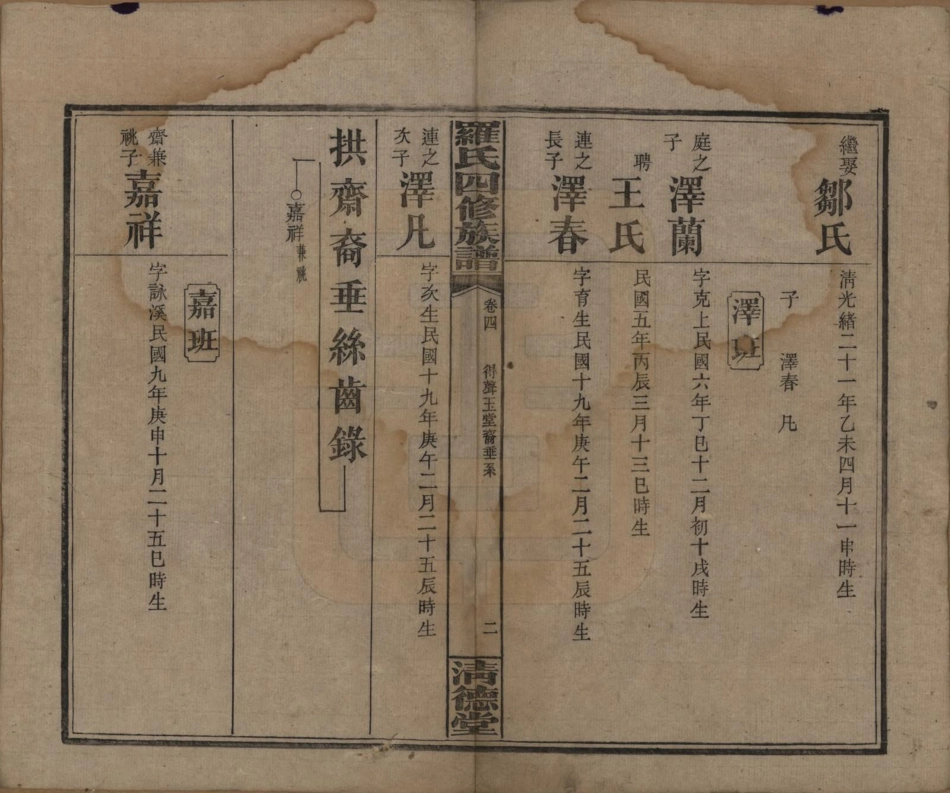 繼娶 鄒氏 清光緒二十一年乙未四月十一申時生
子 澤春 凡
澤班
庭之子 澤蘭 字克上民國六年丁巳十二月初十戌時生
聘 王氏 民國五年丙辰三月十三巳時生
連之長子 澤春 字育生民國十九年庚午二月二十五辰時生
羅氏四修族譜 卷四 得聲玉堂裔垂系 二 清德堂
連之次子 澤凡 字亥生民國十九年庚午二月二十五辰時生
拱齋裔垂絲齒錄
嘉祥 兼祧
嘉班
齋兼祧子 嘉祥 字詠溪民國九年庚申十月二十五巳時生